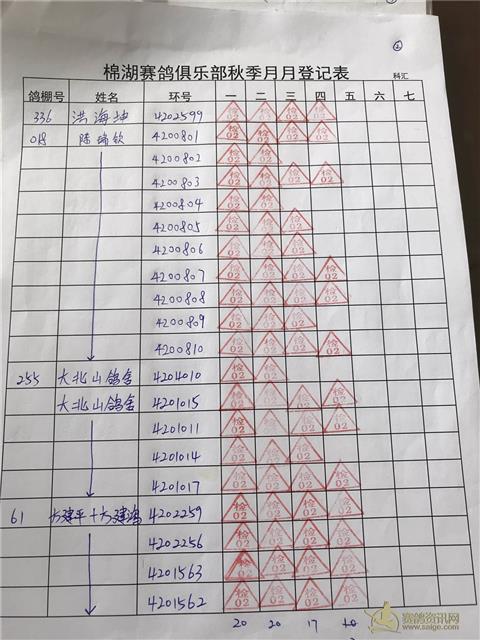 ②
棉湖赛鸽俱乐部秋季月月登记表
科汇
鸽棚号 姓名 环号 一 二 三 四 五 六 七
336 洪海坤 4202599 检02 检02 检02 检02
018 陈瑞钦 4200801 检02 检02 检02 检02
4200802 检02 检02
4200803 检02 检02 检02 检02
4200804 检02 检02
4200805 检02 检02 检02
4200806 检02 检02 检02
4200807 检02 检02 检02 检02
4200808 检02 检02 检02 检02
4200809 检02 检02 检02
4200810 检02 检02 检02 检02
255 大北山鸽舍 4204010 检02 检02
大北山鸽舍 4201015 检02 检02 检02 检02
4201011 检02 检02 检02 检02
4201014 检02 检02 检02
4201017 检02 检02 检02 检02
61 方建平+方建鸿 4202259 检02 检02 检02 检02
4202256 检02 检02 检02 检02
4201563 检02 检02 检02 检02
4201562 检02 检02 检02 检02
20 20 17
赛鸽资讯网
www.saige.com